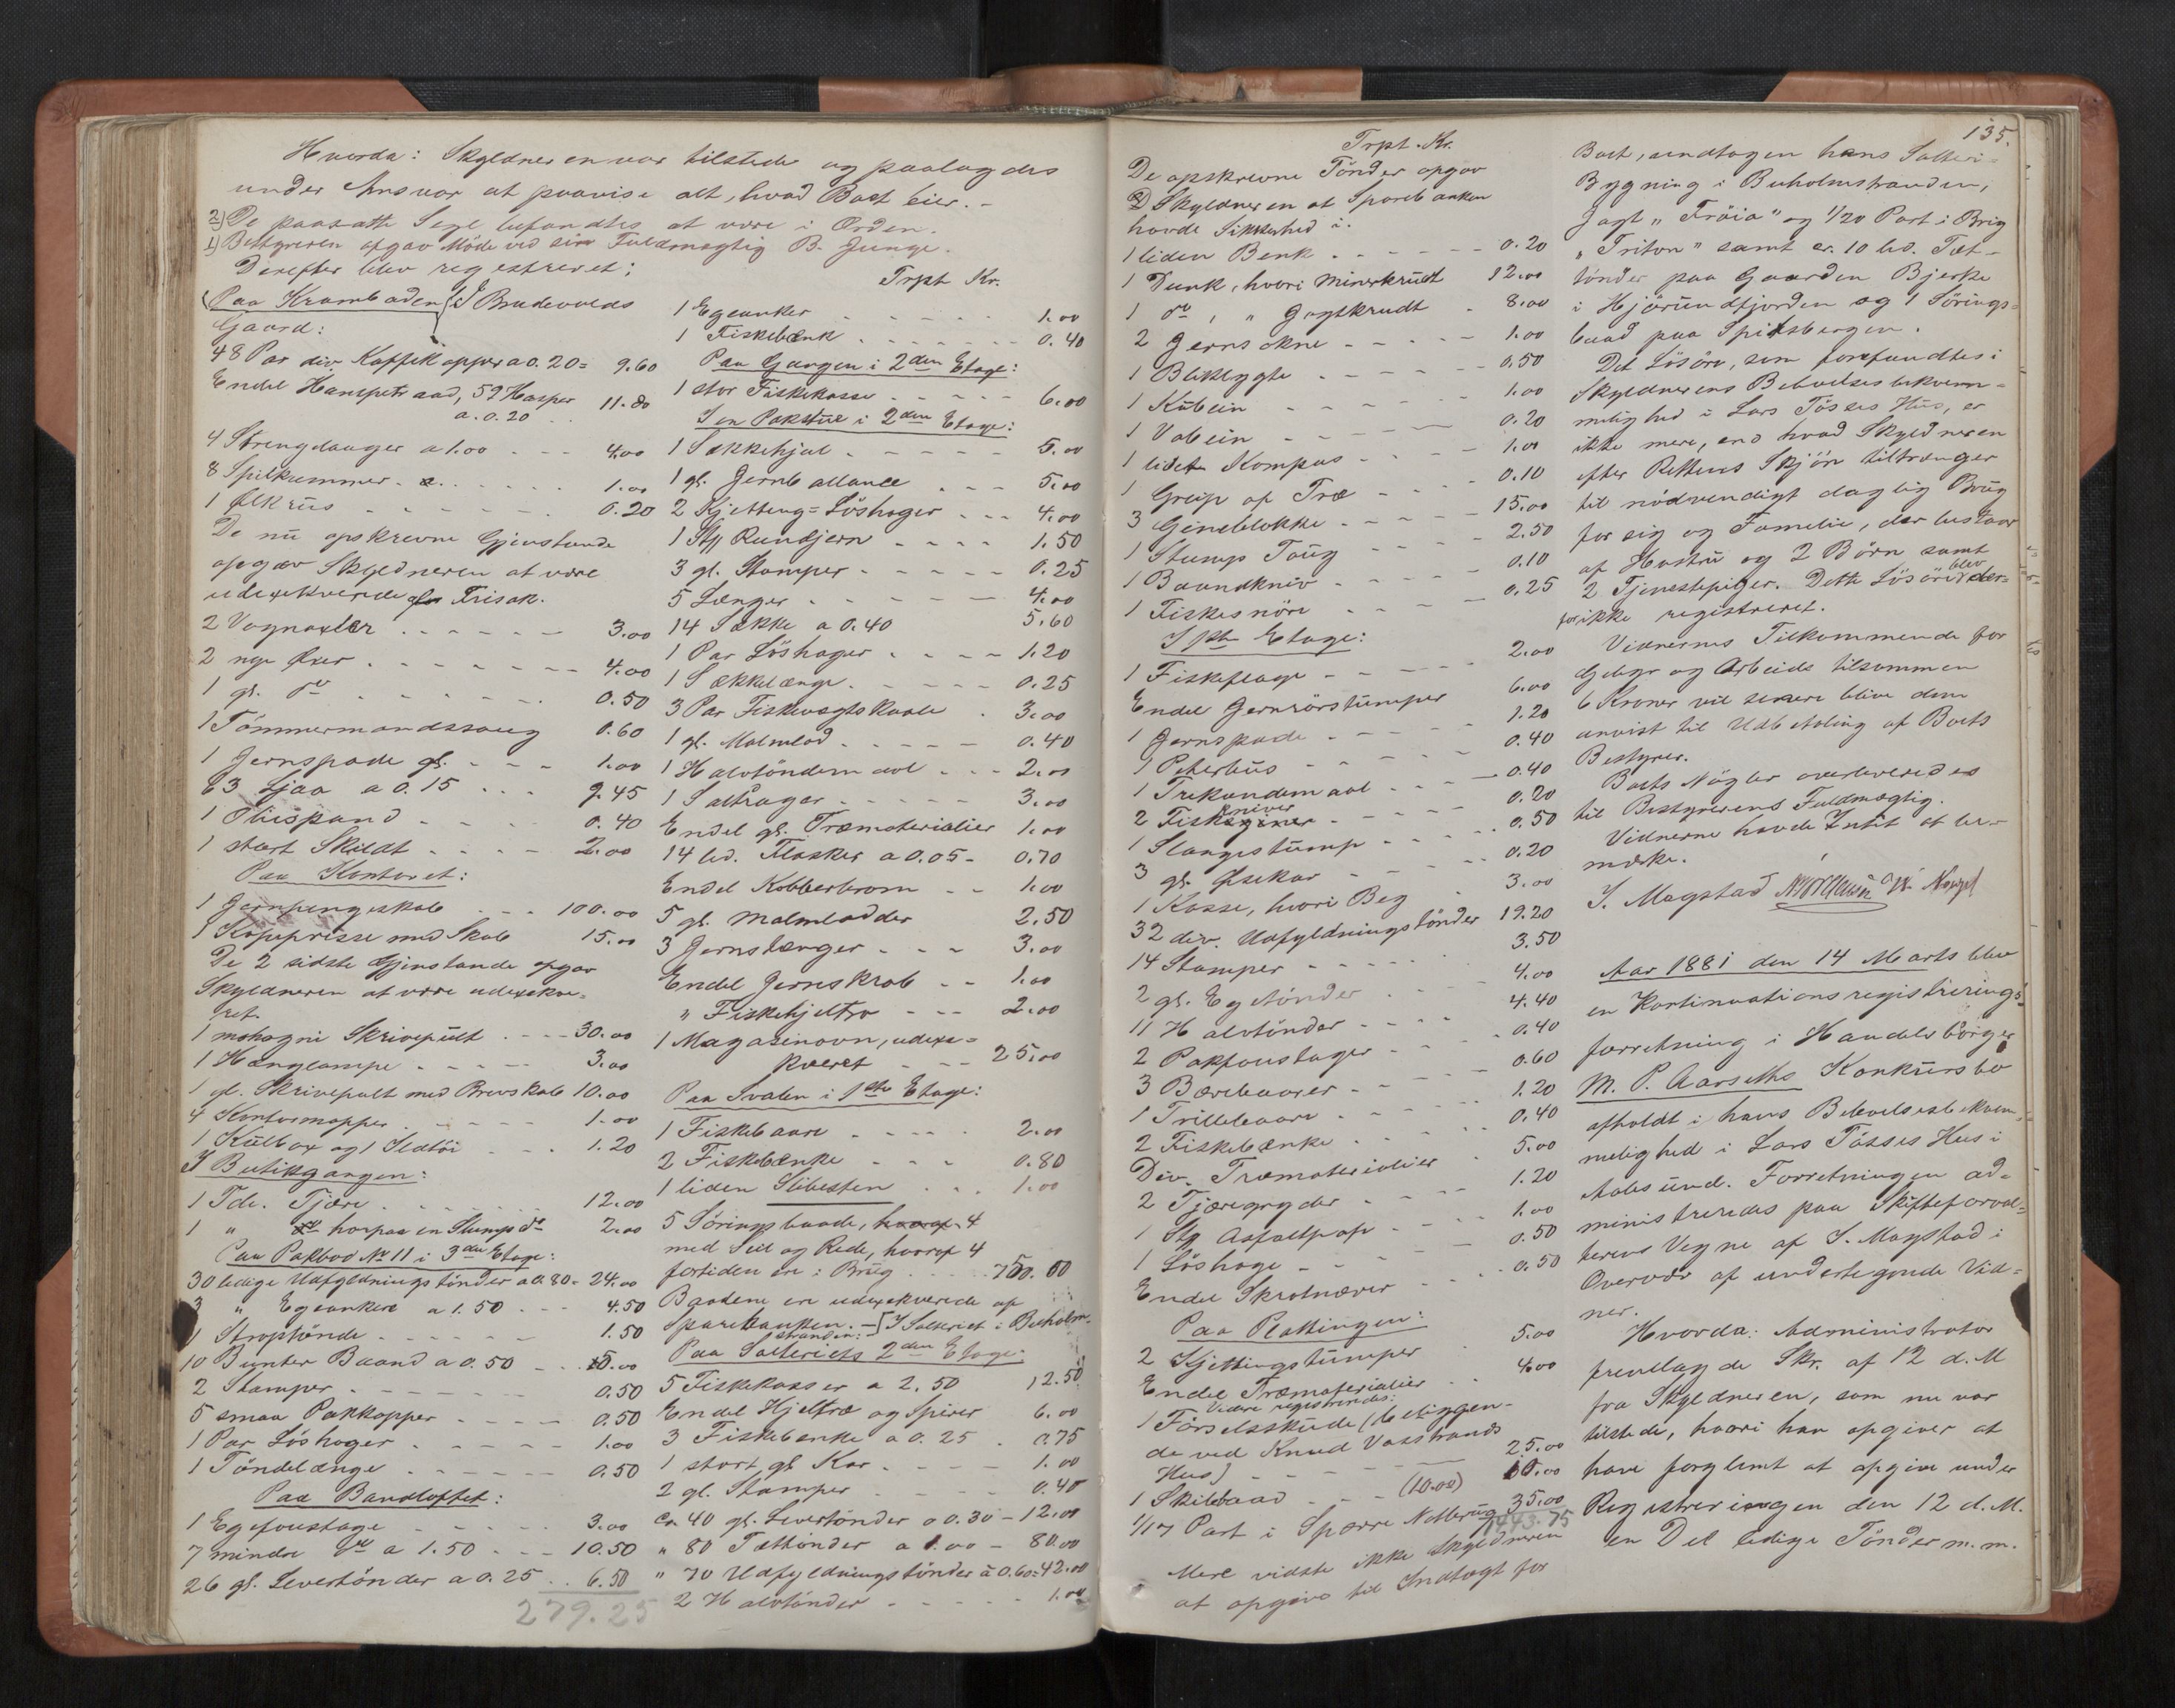 Hvorda: Skyldneren var tilstede og paalagdes
under Ansvar at paavise alt, hvad Boet eier. -
2) De paasatte Segl befandtes at være i Orden.
1) Bestyreren afgav Møde ved sin Fuldmægtig B. Junge.
Derefter blev registreret:
Paa Kramboden (I Brudevolds
Gaard:
48 Par div. Kaffekopper a 0.20 = 9.60
Endel Hampetraad, 59 Hasper
a. 0.20 11.80
4 Strenglauger a 1.00 - - - 4.00
8 Spilkummer . . . . . 1.00
1 Ølkrus - - - - - 0.20
De nu opskrevne Gjenstande
opgav Skyldneren at være
udexekverede Frisak.
2 Vognaxler . . . - - - 3.00
2 nye Øxer . - - - - - 4.00
1 gl. do - - - - - 0.50
1 Tømmermandssaug 0.60
1 Jernspade gl. - - - 1.00
63 Ljaa a 0.15 . . . 9.45
1 Oliespand - - - 0.40
1 stort Skildt - - - - 2.00
Paa Kontoret:
1 Jernpengeskab - - - 100.00
1 Kopipresse med Skab 15.00
De 2 sidste Gjenstande opgav
Skyldneren at være udexekve-
ret.
1 mahogni Skrivepult . - - - 30.00
1 Hænglampe - - - - - 3.00
1 gl. Skrivepult med Brevskab 10.00
4 Kontormapper - - - - 1.00
1 Kulbox og 1 Ildtøi - - - 1.20
I Butikgangen:
1 Tde. Tjære . . . . . . . 12.00
1 " do horpaa en Slump do 2.00
Paa Pakbod No 11 i 3die Etage:
30 ledige Udfyldningstønder a 0.80 = 24.00
3 " Egeankere a 1.50 - - - 4.50
1 Stroptønde - - - - - - 1.50
10 Bunter Baand a 0.50 - - - 5.00
2 Stamper . - - - - - - 0.50
5 smaa Pakkopper - - - - 0.50
1 Par Løshager . - - - - - 1.00
1 Tøndelænge . - - - - - 0.50
Paa Bandloftet:
1 Egefoustage - - - - - 3.00
7 mindre do a 1.50 - - - 10.50
26 gl. Levertønder a 0.25 . . 6.50
279.25
Trpt Kr.
1 Egeanker - - - - - - 1.00
1 Fiskebænk . - - - - - - 0.40
Paa Gangen i 2den Etage:
1 stor Fiskekasse - - - - - 6.00
I en Pakstue i 2den Etage:
1 Sækkehjul - - - - - 5.00
1 gl. Jernballance - - - 5.00
2 Kjetteng = Løshager - - - 4.00
1 Stk Rundjern - - - - 1.50
3 gl. Stamper - - - - - 0.25
5 Længer - - - - - - 4.00
14 Sække a 0.40 5.60
1 Par Løshager . - - - - 1.20
1 Sækkelænge . - - - - - 0.25
3 Par Fiskevægtskaale . 3.00
1 gl. Malmlod . - - - - - 0.40
1 Halvtøndemaal - - - 2.00
1 Saltrager - - - - - - 3.00
Endel gl. Træmaterialier 1.00
14 led. Flasker a 0.05 - 0.70
Endel Kobberkram - - 1.00
5 gl. Malmlodder 2.50
3 Jernstænger - - - 3.00
Endel Jernskrab - - 1.00
" Fiskehjeltræ - - - 2.00
1 Magasinovn, udexe-
kveret - - 25.00
Paa Svalen i 1ste Etage:
1 Fiskebaare - - - - - 2.00
2 Fiskebænke - - - 0.80
1 liden Slibesten . . . 1.00
5 Søringsbaade, hvoraf 4
med Seil og Rede, hvoraf 4
fortiden ere i Brug . . . . 750.00
Baadene ere udexekverede af
Sparebanken. - [I Salteriet i Buholm-
stranden:
Paa Salteriets 2den Etage:
5 Fiskekasser a 2.50 12.50
Endel Hjeltræ og Spirer 6.00
3 Fiskebenke a 0.25 . 0.75
1 stort gl. Kar . - - - - 1.00
2 gl. Stamper - - - - 0.40
Ca 40 gl. Levertønder a 0.30 - 12.00
" 80 Tættønder a 1.00 - 80.00
" 70 Udfyldningstønder a 0.60 = 42.00
2 Halvtønder - - - - - 1.00
135.
Trpt. Kr.
De opskrevne Tønder opgav
Skyldneren at Sparebanken
havde Sikkerhed i.
1 liden Benk . - - - - - 0.20
1 Dunk, hvori Minerkrudt 12.00
1 do , " Jagtkrudt - 8.00
2 Jernsokne - - - - - 1.00
1 Bliklygte . - - - - - 0.50
1 Kubein - - - - - - 1.00
1 Vabein - - - - - 0.20
1 lidet Kompas - - - - 1.00
1 Greip af Træ - - - - 0.10
3 Gineblokke . - - - - - 15.00
1 Stump Toug - - - - 2.50
1 Baandkniv - - - - - 0.10
1 Fiskesnøre - - - - - 0.25
I 1ste Etage:
1 Fiskeflage - - - - - 2.00
Endel Jernrørstumper 6.00
1 Jernspade - - - - - 1.20
1 Peterhus - - - - - 0.40
1 Trekandemaal - - - - 0.40
2 Fiskekniver - - - - 0.20
1 Slangestump - - - . 0.50
3 gl. Øsekar - - - - 0.20
1 Kasse, hvori Beg 3.00
32 div. Udfyldningstønder 19.20
14 Stamper - - - - - 3.50
2 gl. Egetønder . - - - 4.00
11 Halvtønder - - - - 4.40
2 Pakfoustager - - - - 0.40
3 Bærebaarer - - - - 0.60
1 Trillebaare - - - - 1.20
2 Fiskebænke . - - - - 0.40
Div. Træmaterialier - 5.00
2 Tjæregryder - - - - 1.20
1 Stk Asfaltpap - - - 1.00
1 Løshage - - - - - 0.50
Endel Skrotnæver - - - 0.50
Paa Plattingen:
2 Kjettingstumper 5.00
Endel Træmaterialier . . 4.00
Videre registreredes:
1 Førselsskude (beliggen-
de ved Knud Vasstrands
Hus) - - - - - - 25.00
1 Skibbaad - - - (10.00) 10.00
35.00
1/17 Part i Spærre Notbrug
1443.75
Mere vidste ikke Skyldneren
at opgive til Indtægt for
Boet, undtagen hans Salteri-
Bygning i Buholmstranden,
Jagt „Frøia" og 1/20 Part i Brig
„Triton" samt ca. 10 led. Tæt-
tønder paa Gaarden Bjerke
i Hjørundfjorden og 1 Sørings-
baad paa Spitsbergen.
Det Løsøre, som forefandtes i
Skyldnerens Beboelsesbekvem-
melighed i Lars Tøsses Hus, er
ikke mere, end hvad Skyldneren
efter Rettens Skjøn tiltrænger
til nødvendigt daglig Brug
for sig og Familie, der bestaar
af Hustru og 2 Børn samt
2 Tjenestepiger. Dette Løsøre blev der-
for ikke registreret.
Vidnernes Tilkommende for
Gebyr og Arbeide tilsammen
6 Kroner vil senere blive dem
anvist til Udbetaling af Boets
Bestyrer.
Boets Nøgler overleveredes
til Bestyrerens Fuldmægtig.
Vidnerne havde Intet at be-
mærke.
I. Magstad
Aar 1881 den 14 Marts blev
en Kontinuationsregistrerings-
forretning i Handelsborger
M. P. Aarseths Konkursbo
afholdt i hans Beboelsesbekvem-
melighed i Lars Tøsses Hus i
Aalesund. Forretningen ad-
ministreredes paa Skifteforval-
terens Vegne af I. Magstad i
Overvær af undertegnede Vid-
ner.
Hvorda: Administrator
fremlagde Skr. af 12 d. M
fra Skyldneren, som nu var
tilstede, hvori han opgiver at
have forglemt at opgive under
Registreringen den 12 d. M.
en Del ledige Tønder m.m.